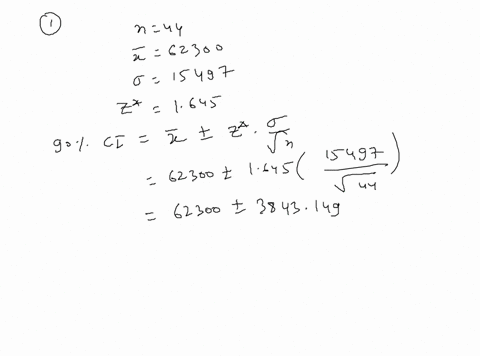 ①
n = 44
x̄ = 62300
σ = 15497
Z* = 1.645
90% CI = x̄ ± Z* · σ/√n
= 62300 ± 1.645 (15497/√44)
= 62300 ± 3843.149